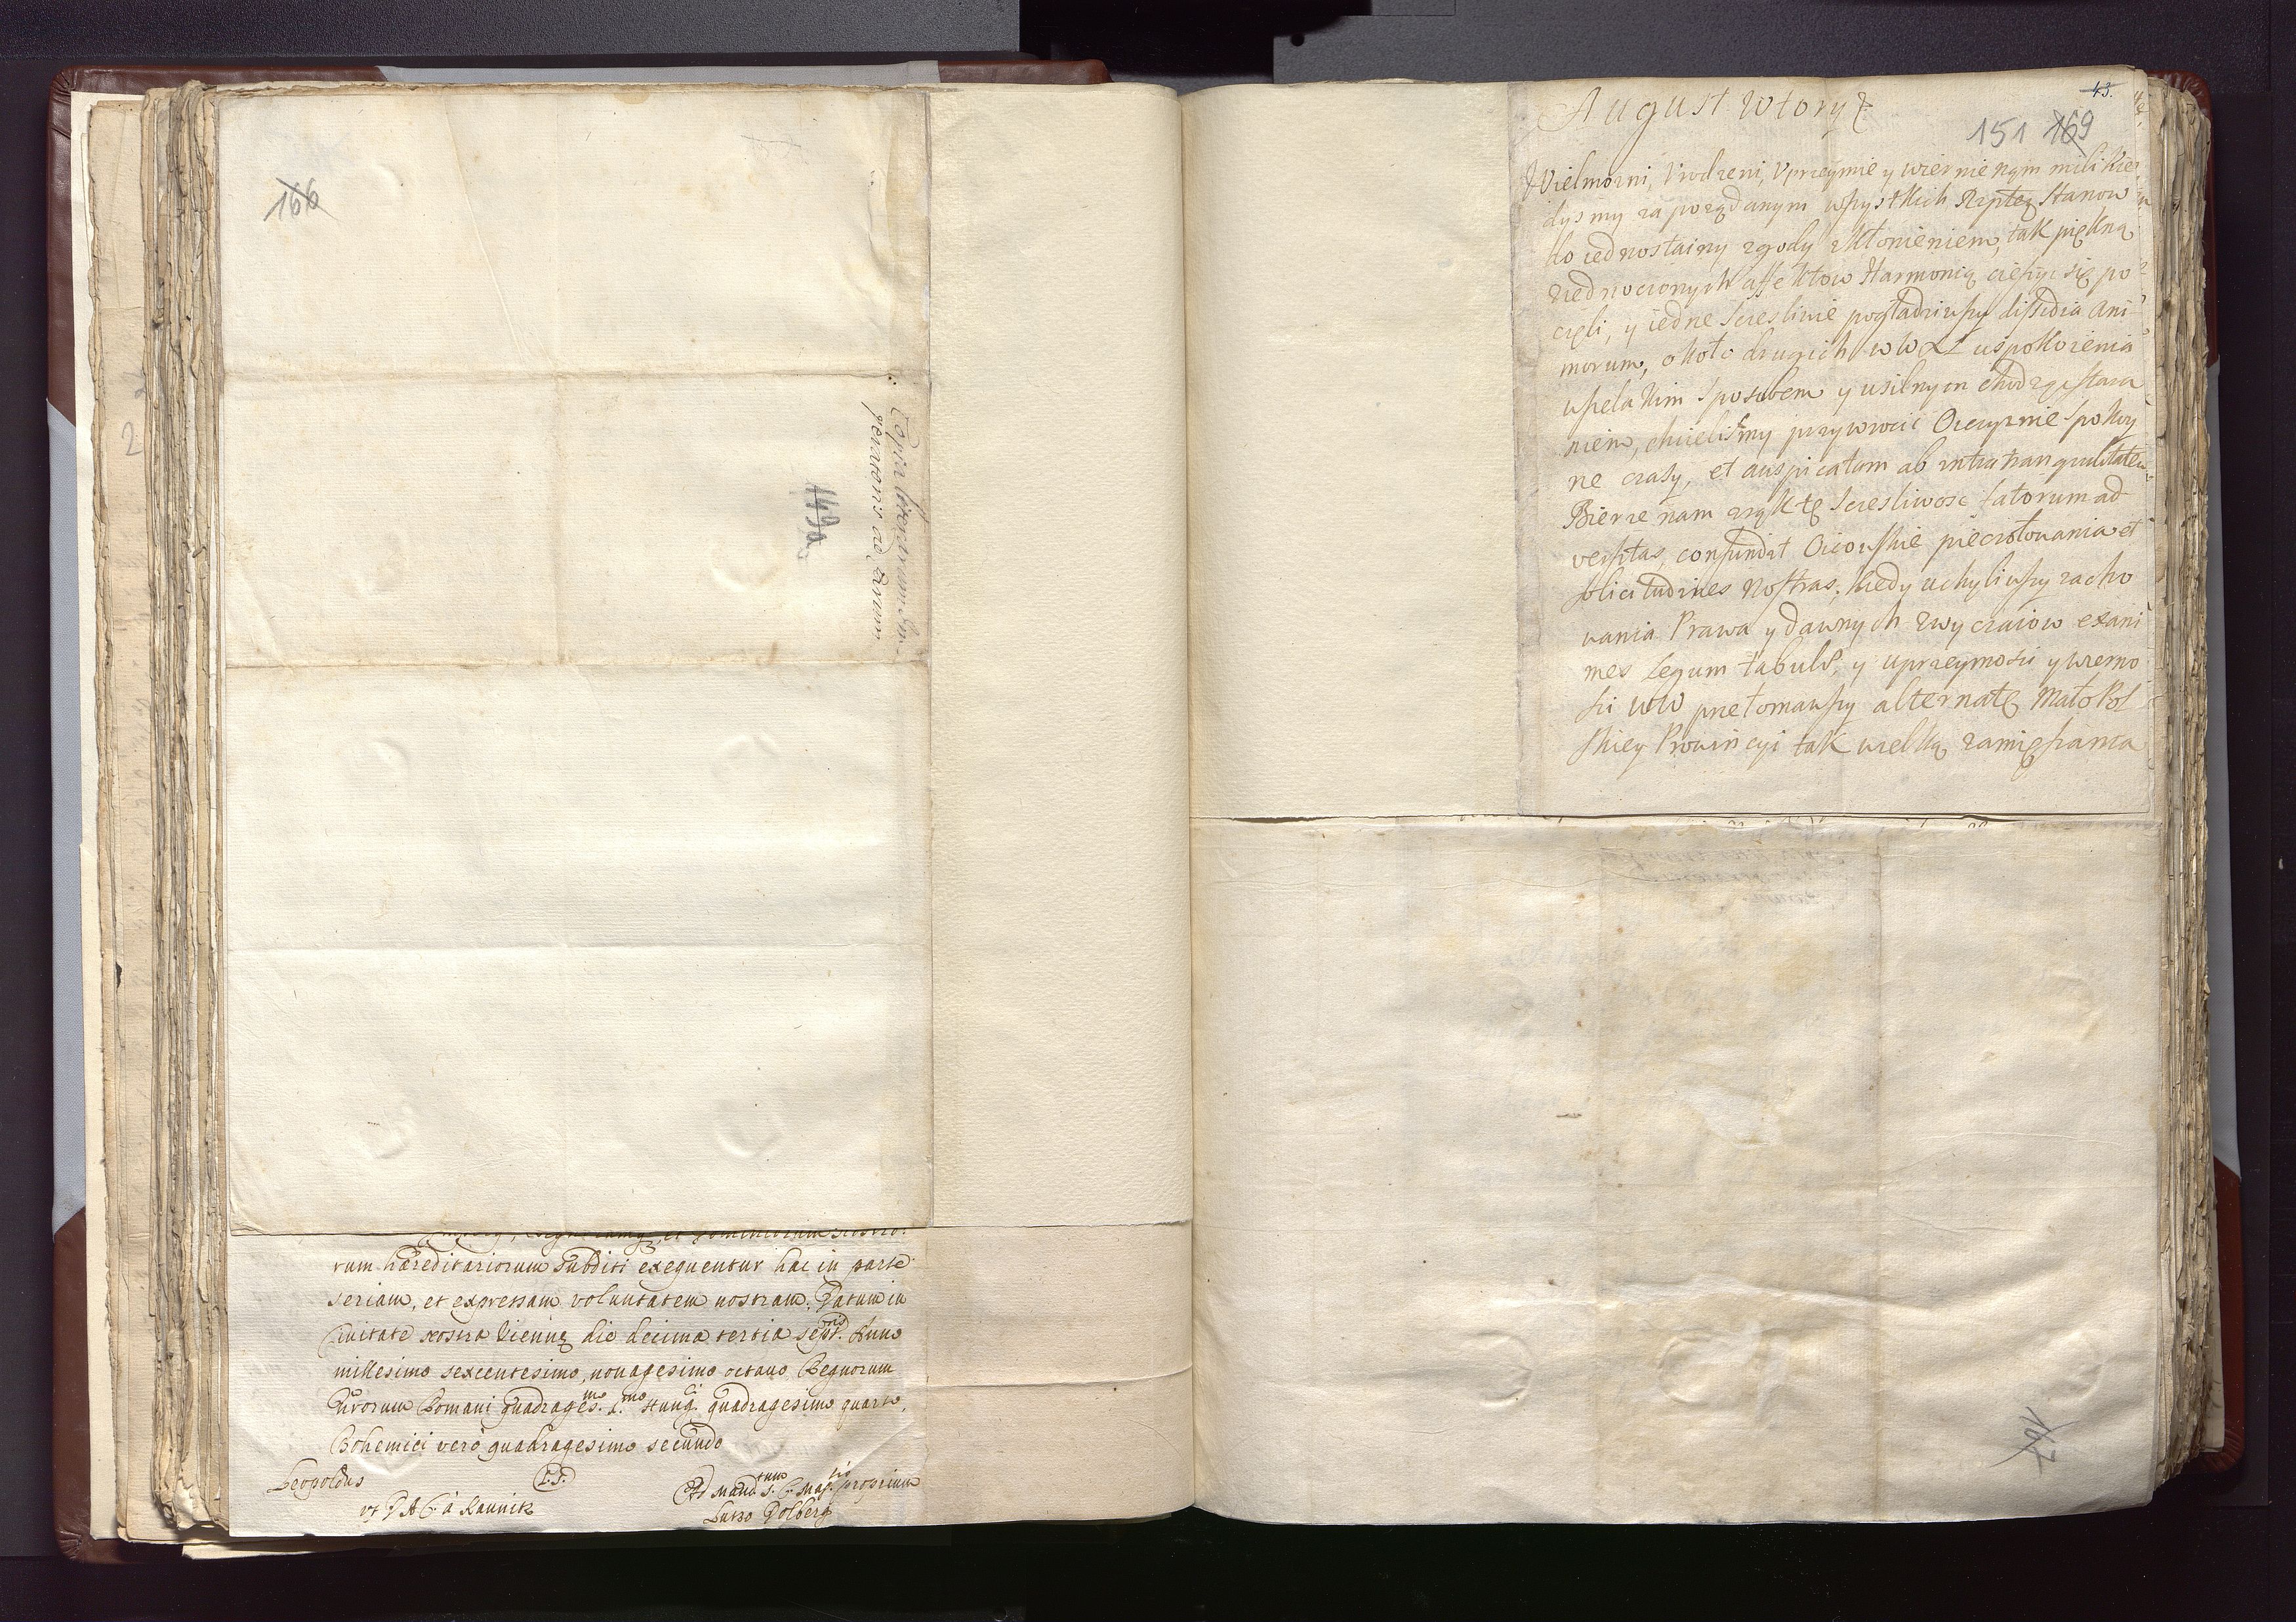 166
Copia
peratoris ad
149a
2
rum haereditariorum subditi exequentur hac in parte
seriam, et expressam voluntatem nostram. Datum in
Civitate nostra Viennę die decima tertia Sept.bris Anno
millesimo sexcentesimo, nonagesimo octavo, Regnorum
Nrorum Romani quadrages.mo 1.mo Hung.ci quadragesimo quarto,
Bohemici verò quadragesimo secundo
Leopoldus
L.S.
Ad Mand.tum S. C. Maj.tis proprium
vt D A C à Kaunitz
Dolberg
43.
August Wtory
151 169
Wielmożni, Vrodzeni, Vprzeymie y wiernie nąm mili Kie
dysmy za pożądanym wszystkich Rzptey Stanow
do iednostainy zgody skłonieniem, tak piękną
ziednoczonych affektow Harmonią cieszyc się po
częli, y iedne sczesliwie pogładziwszy dissidia ani
morum, około drugich w WXL uspokoienia
wszelakim sposobem y usilnym chodząc stara
niem, chcielismy przywrocic Oyczyznie spokoy
ne czasy, et auspicatam ab intra tranquillitatem
Bierze nam z rąk tę sczesliwosc fatorum ad
versitas, confundit Oicowskie pieczołowania et
solicitudines Nostras, kiedy uchyliwszy zacho
wania Prawa y dawnych zwyczaiow exani
mes Legum tabulas, y uprzeymosci y wierno
sci WW przełomawszy alternatę Małopol
skiey Prowincyi tak wielką zamięszania
167